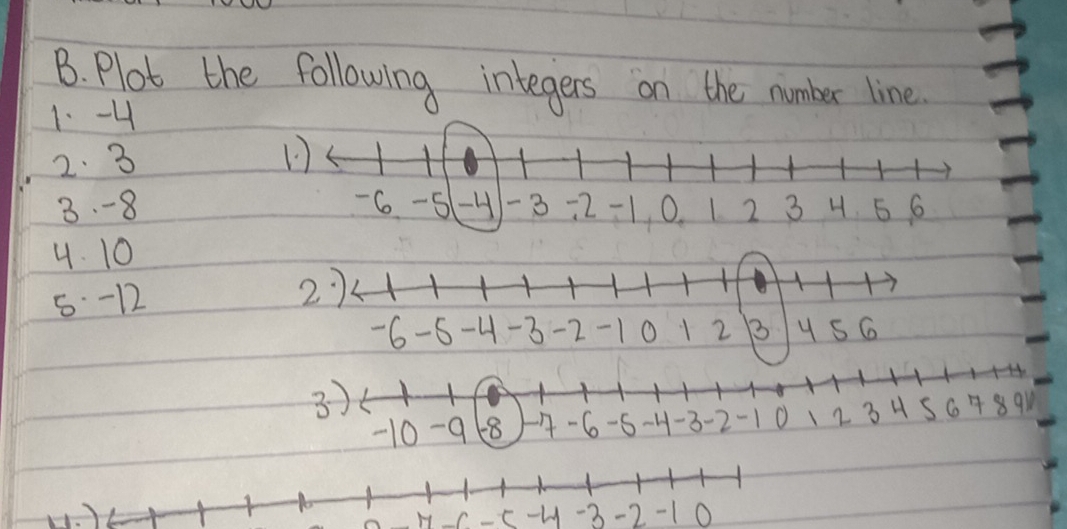 B. Plot the following integers on the number line.
1. -4
2. 3
3. -8
4. 10
5. -12
1.)
-6 -5 -4 -3 -2 -1 0 1 2 3 4 5 6
2.)
-6 -5 -4 -3 -2 -1 0 1 2 3 4 5 6
3.)
-10 -9 -8 -7 -6 -5 -4 -3 -2 -1 0 1 2 3 4 5 6 7 8 9 10
4.)
-7 -6 -5 -4 -3 -2 -1 0